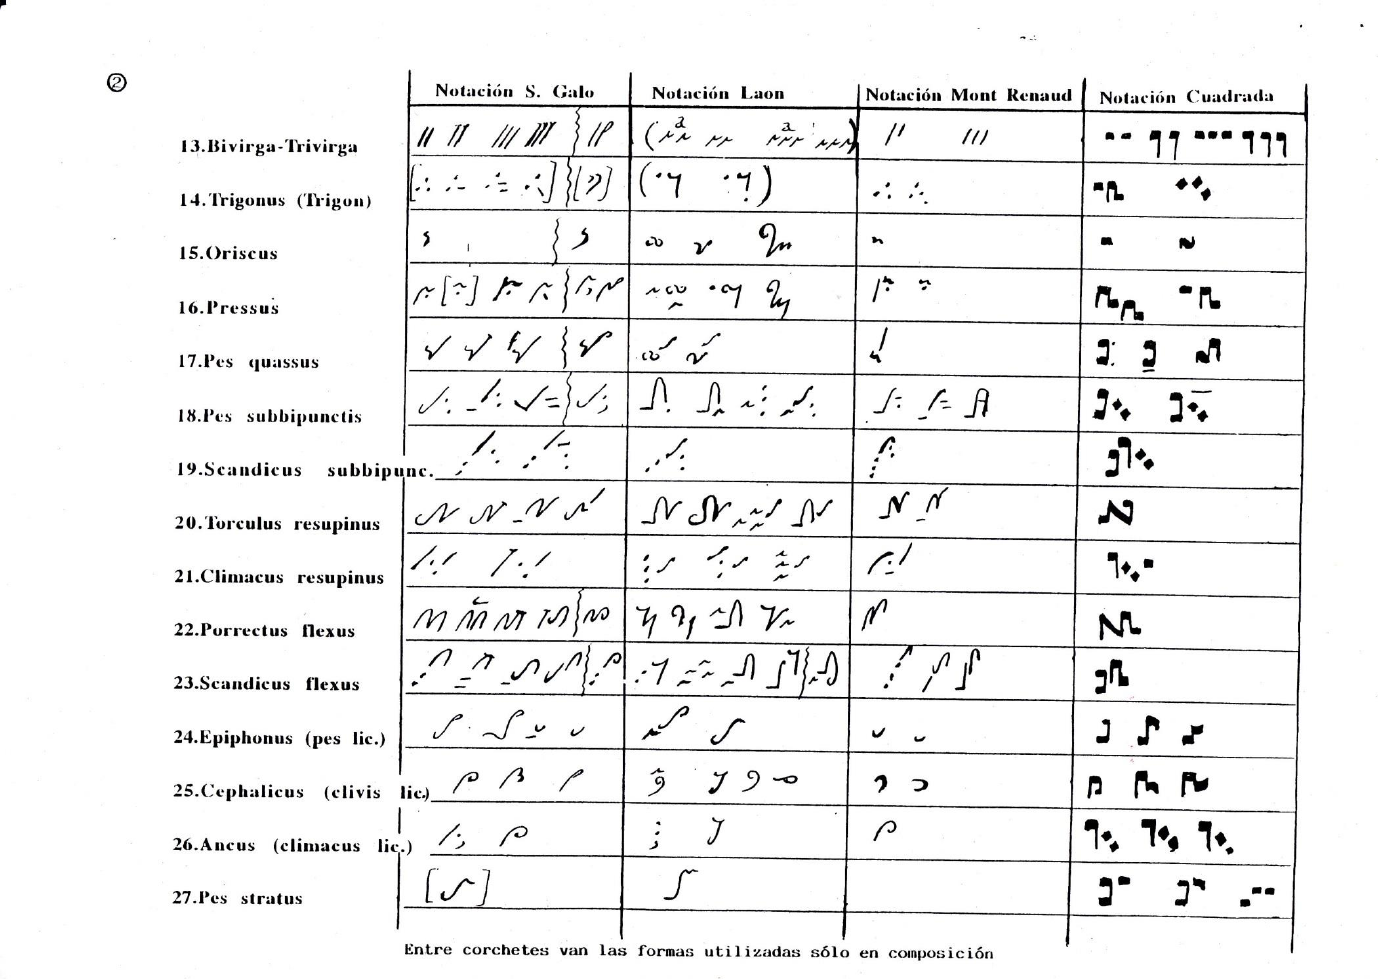 ②
Notación S. Galo Notación Laon Notación Mont Renaud Notación Cuadrada
13.Bivirga-Trivirga
14.Trigonus (Trigon)
15.Oriscus
16.Pressus
17.Pes quassus
18.Pes subbipunctis
19.Scandicus subbipunc.
20.Torculus resupinus
21.Climacus resupinus
22.Porrectus flexus
23.Scandicus flexus
24.Epiphonus (pes lic.)
25.Cephalicus (clivis lic.)
26.Ancus (climacus lic.)
27.Pes stratus
Entre corchetes van las formas utilizadas sólo en composición